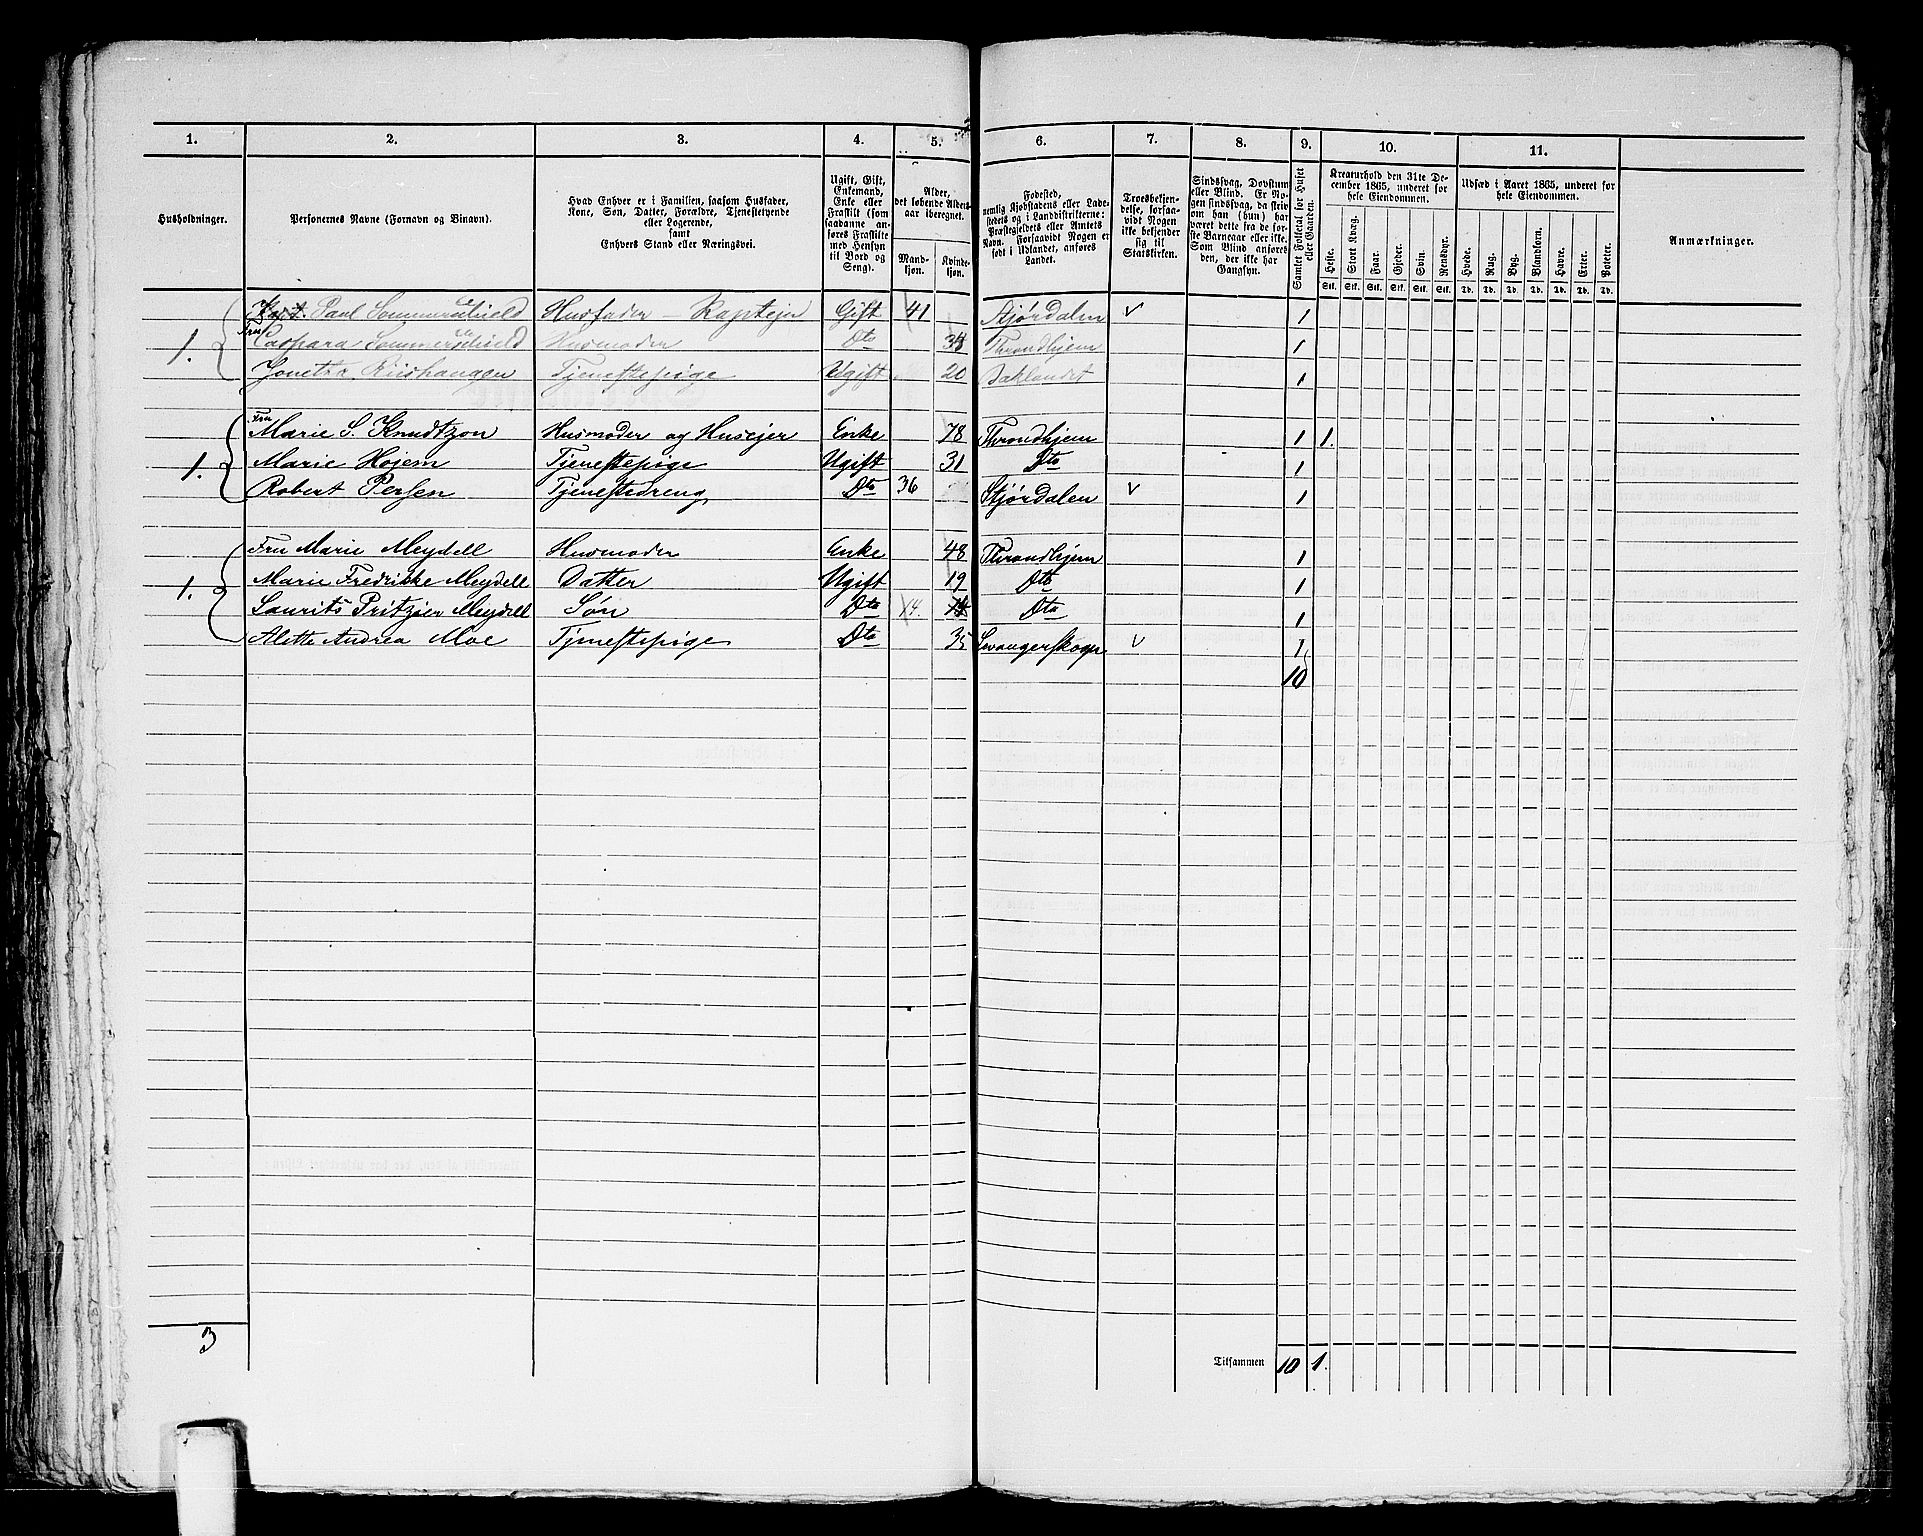 1. 2. 3. 4. 5. 6. 7. 8. 9. 10. 11.
Husholdninger.
Personernes Navne (Fornavn og Binavn).
Hvad Enhver er i Familien, saasom Husfader,
Kone, Søn, Datter, Forældre, Tjenestetyende
eller Logerende,
samt
Enhvers Stand eller Næringsvei.
Ugift, Gift,
Enkemand,
Enke eller
Fraskilt (som
saadanne an-
føres Fraskilte
med Hensyn
til Bord og
Seng).
Alder,
det løbende Alders-
aar iberegnet.
Mand-
kjøn.
Kvinde-
kjøn.
Fødested,
nemlig Kjøbstadens eller Lade-
stedets og i Landdistrikterne:
Præstegjeldets eller Amtets
Navn. Forsaavidt Nogen er
født i Udlandet, anføres
Landet.
Troesbekjen-
delse, forsaa-
vidt Nogen
ikke bekjender
sig til
Statskirken.
Sindssvag, Døvstum
eller Blind. Er No-
gen sindssvag, da skriv
om han (hun) har
været dette fra de før-
ste Barneaar eller ikke.
Som Blind anføres
den, der ikke har
Gangsyn.
Samlet Folketal for Huset
eller Gaarden.
Kreaturhold den 31te De-
cember 1865, underet for
hele Eiendommen.
Heste. Stort Kvæg. Faar. Gjeder. Svin. Rensdyr.
Stk. Stk. Stk. Stk. Stk. Stk.
Udsæd i Aaret 1865, underet for
hele Eiendommen.
Hvede. Rug. Byg. Blandkorn. Havre. Erter. Poteter.
Td. Td. Td. Td. Td. Td. Td.
Anmærkninger.
Kapt. Paul Sommerschield Husfader – Kaptejn Gift 41 Stjørdalen v 1
1. Fru Caspara Sommerschield Husmoder Dto 38 Throndhjem 1
Jonetta Riishaugen Tjenestepige Ugift 20 Baklandet 1
Fru Marie S. Knudtzon Husmoder og Husejer Enke 78 Throndhjem 1 1.
1. Marie Hojem Tjenestepige Ugift 31 Dto 1
Robert Persen Tjenestedreng Dto 36 Stjørdalen v 1
Fru Marie Meydell Husmoder Enke 48 Throndhjem 1
1. Marie Fredrikke Meydell Datter Ugift 19 Dto 1
Laurits Pritzier Meydell Søn Dto 14. 14 Dto 1
Alette Andrea Moe Tjenestepige Dto 35 Levangerskogn v 1
10
3
Tilsammen 10 1.